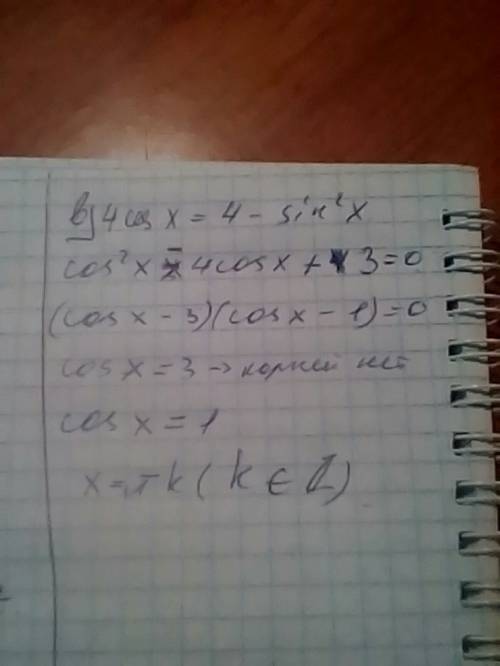 в) 4cos x = 4 - sin²x
cos²x - 4cos x + 3 = 0
(cos x - 3)(cos x - 1) = 0
cos x = 3 → корней нет
cos x = 1
x = πk (k ∈ Z)